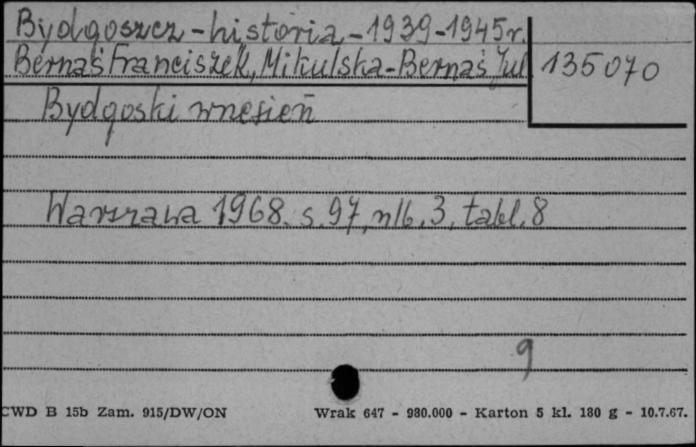 Bydgoszcz - historia - 1939-1945r.
Bernaś Franciszek, Mikulska-Bernaś Jul
135070
Bydgoski wrzesień
Warszawa 1968. s. 97, nlb. 3, tabl. 8
9
CWD B 15b Zam. 915/DW/ON
Wrak 647 - 980.000 - Karton 5 kl. 180 g - 10.7.67.